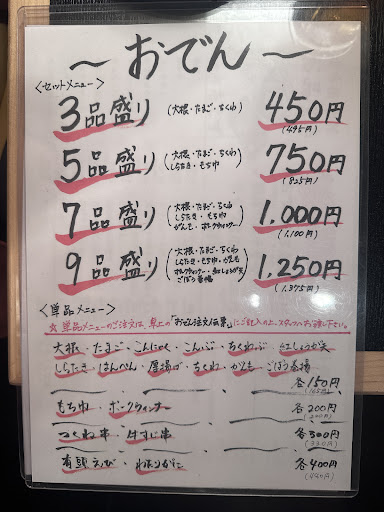 ～おでん～
<セットメニュー>
3品盛り (大根・たまご・ちくわ) 450円
(495円)
5品盛り (大根・たまご・ちくわ
しらたき・もち巾) 750円
(825円)
7品盛り (大根・たまご・ちくわ
しらたき・もち巾
がんも・ポークウィンナー) 1.000円
(1.100円)
9品盛り (大根・たまご・ちくわ
しらたき・もち巾・がんも
ポークウィンナー・紅しょうが天
ごぼう巻揚) 1.250円
(1.375円)
<単品メニュー>
単品メニューのご注文は、卓上の「おでん注文伝票」にご記入の上、スタッフへお渡し下さい。
大根・たまご・こんにゃく・こんぶ・ちくわぶ・紅しょうが天
しらたき・はんぺん・厚揚げ・ちくわ・がんも・ごぼう巻揚
各150円
(165円)
もち巾・ポークウィンナー 各200円
(220円)
つくね串・牛すじ串 各300円
(330円)
有頭えび・わたりがに 各400円
(440円)